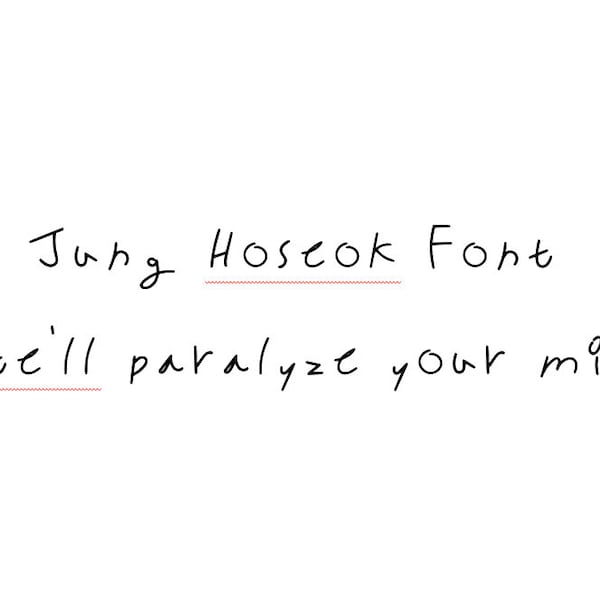 Jung Hoseok Font
e'll paralyze your mi